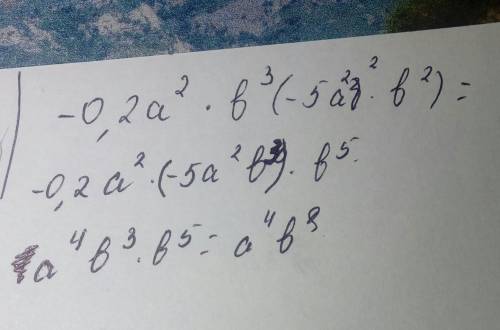 -0,2a² · в³(-5a² · в²) =
-0,2a² · (-5a²в³) · в⁵
a⁴в³ · в⁵ = a⁴в⁸